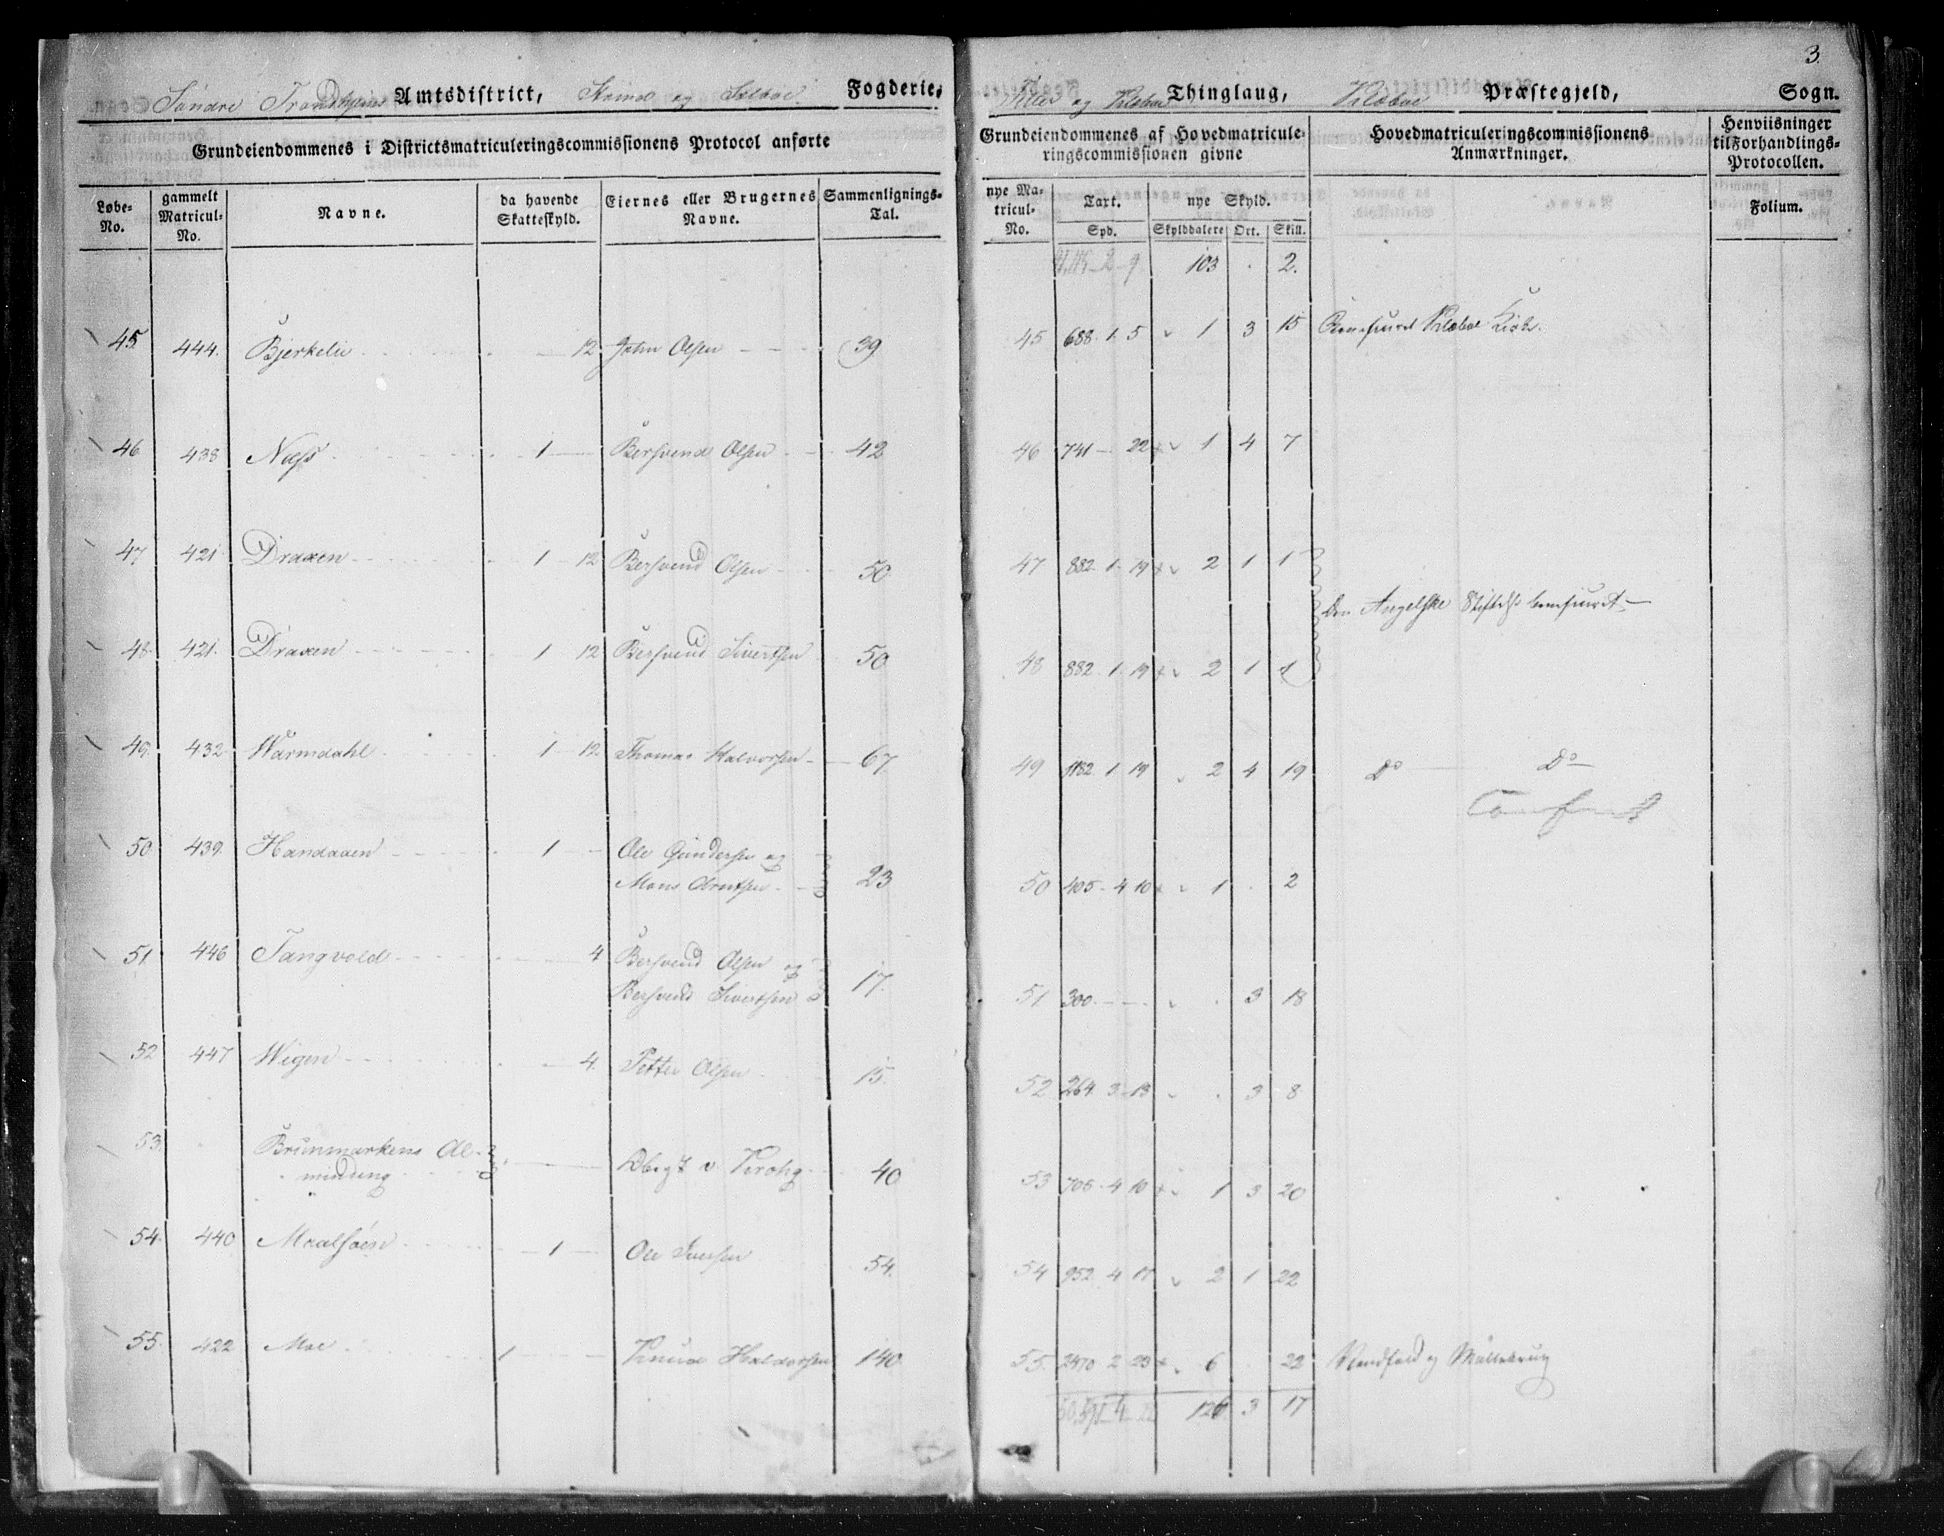 3.
Søndre Trondhjems Amtsdistrict, og Selboe Fogderie, Tiller og Klæboe Thinglaug, Klæboe Præstegjeld, Sogn.
Grundeiendommenes i Districtsmatriculeringscommissionens Protocol anførte
Grundeiendommenes af Hovedmatriculeringscommissionen givne
Hovedmatriculeringscommissionens Anmærkninger.
Henviisninger til Forhandlings-Protocollen.
Løbe-No. gammelt Matricul-No. Navne. da havende Skatteskyld. Eiernes eller Brugernes Navne. Sammenlignings-Tal. nye Matricul-No. Taxt. nye Skyld. Folium.
Spd. Skylddalere Ort. Skill.
103 . 2.
45. 444. Bjerkelie 12 John Olsen 39 45 688. 1. 5 1 3 15 Beneficeret Klæboe Kirke.
46 438 Næss 1 Bersvend Olsen 42 46 741 - 22 1 4 7
47 421 Draxen 1 12 Bersvend Olsen 50 47 882. 1. 19 2 1 1
Den Angelske Stiftelse beneficeret
48 421. Draxen 1 12 Bersvend Sivertsen 50 48 882. 1. 19 2 1 1
49. 432 Warmdahl 1 12 Thomas Halvorsen 67. 49 1182. 1 19 2 4 19 Do Do
50 439. Handaaen 1 Ole Gundersen og
Mons Arntsen 23 50 405. 4 10 1 . 2
51. 446 Tangvold 4 Bersvend Olsen og
Bersvend Sivertsen 17. 51 300. . 3 18
52 447 Wigen 4. Petter Olsen 15. 52 264. 3 13 . 3 8
53 Brunmarkens Al-
minding v Krohg 40 53 706. 4 10 1 3 20
54. 440 Maalsøen 1 Ole Iversen 54. 54 952. 4 17 2 1 22
55. 422 Moe 1 Knud Haldorsen 140. 55. 2470 2 23 6 . 22 Vandfald og Møllebrug
126 3 17